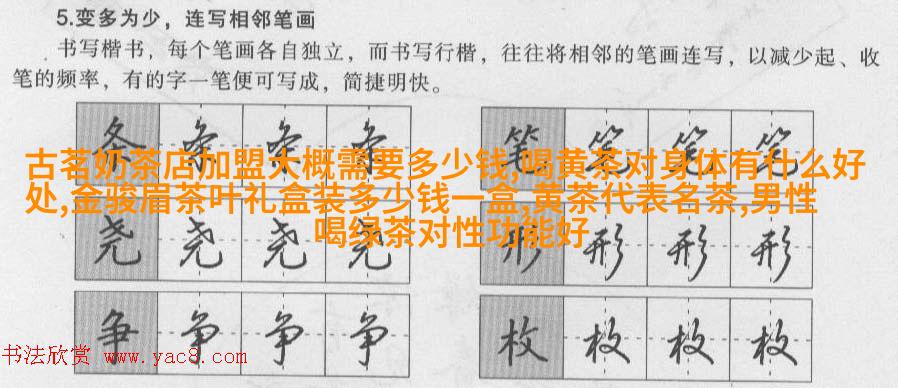 5.变多为少，连写相邻笔画
书写楷书，每个笔画各自独立，而书写行楷，往往将相邻的笔画连写，以减少起、收
笔的频率，有的字一笔便可写成，简捷明快。
条 条 条 条 笔 笔 笔 笔
古茗奶茶店加盟大概需要多少钱,喝黄茶对身体有什么好
处,金骏眉茶叶礼盒装多少钱一盒,黄茶代表名茶,男性
喝绿茶对性功能好
尧 尧 尧 尧 形 形 形 形
争 争 争 争 枚 枚 枚 枚
书法欣赏 www.yac8.com